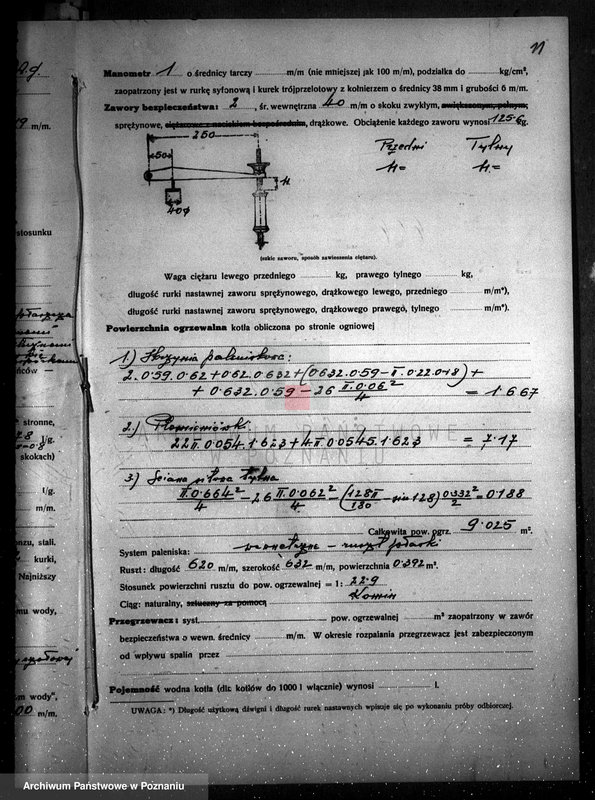 11
Manometr 1 o średnicy tarczy m/m (nie mniejszej jak 100 m/m), podziałka do kg/cm²,
zaopatrzony jest w rurkę syfonową i kurek trójprzelotowy z kołnierzem o średnicy 38 mm i grubości 6 m/m.
Zawory bezpieczeństwa: 2, śr. wewnętrzna 40 m/m o skoku zwykłym, zwiększonym, pełnym,
sprężynowe, ciężarowe z naciskiem bezpośrednim, drążkowe. Obciążenie każdego zaworu wynosi 125.6 kg.
250
Przedni Tylny
50
H= H=
H
40φ
(szkic zaworu, sposób zawieszenia ciężaru).
Waga ciężaru lewego przedniego kg, prawego tylnego kg,
długość rurki nastawnej zaworu sprężynowego, drążkowego lewego, przedniego m/m*),
długość rurki nastawnej zaworu sprężynowego, drążkowego prawego, tylnego m/m*).
Powierzchnia ogrzewalna kotła obliczona po stronie ogniowej
1.) Skrzynia paleniskowa:
2.0.59.0.62+0.62.0.632+(0.632.0.59-π.0.22.0.18)+
+0.632.0.59-26 π.0.06²/4 = 1.667
2.) Płomieniówki
22π.0.054.1.623+4π.0.0545.1.623 = 7.17
3.) Ściana sitowa tylna
π.0.664²/4 - 26 π.0.062²/4 - (128π/180 - sin 128) 0.332²/2 = 0.188
Całkowita pow. ogrz. 9.025 m².
System paleniska: wewnętrzne - ruszt płaski
Ruszt: długość 620 m/m, szerokość 632 m/m, powierzchnia 0.392 m².
Stosunek powierzchni rusztu do pow. ogrzewalnej = 1: 22.9
Ciąg: naturalny, sztuczny za pomocą Komin
Przegrzewacz: syst. pow. ogrzewalnej m² zaopatrzony w zawór
bezpieczeństwa o wewn. średnicy m/m. W okresie rozpalania przegrzewacz jest zabezpieczonym
od wpływu spalin przez
Pojemność wodna kotła (dla kotłów do 1000 l włącznie) wynosi l.
UWAGA: *) Długość użytkową dźwigni i długość rurek nastawnych wpisuje się po wykonaniu próby odbiorczej.
m/m.
stosunku
stronne,
l/g.
skokach)
l/g.
m/m.
onzu, stali.
kurki,
Najniższy
mu wody,
m wody",
00 m/m.
ARCHIWUM PAŃSTWOWE
W POZNANIU
Archiwum Państwowe w Poznaniu